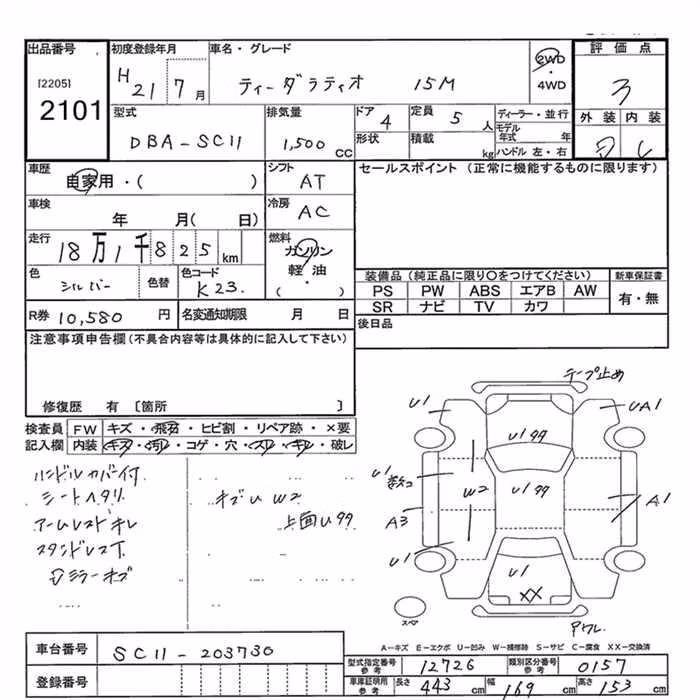 出品番号
[2205]
2101
初度登録年月
H 21 7 月
車名・グレード
ティーダラティオ 15M
2WD
・
4WD
評価点
3
外装 内装
型式
DBA-SC11
排気量
1,500 cc
ドア
4
定員
5 人
形状
積載
kg
ディーラー・並行
モデル年式 年
ハンドル 左・右
車歴
自家用・( )
シフト
AT
車検
年 月( 日)
冷房
AC
走行
18万1千825km
燃料
ガソリン
軽・油
・
( )
色
シルバー
色替
色コード
K23
R券 10,580 円
名変通知期限 月 日
セールスポイント (正常に機能するものに限ります)
装備品(純正品に限り〇をつけてください)
新車保証書
PS PW ABS エアB AW
SR ナビ TV カワ
有・無
後日品
注意事項申告欄(不具合内容等は具体的に記入して下さい)
修復歴 有 〔箇所 〕
検査員 FW キズ・飛石・ヒビ割・リペア跡・×要
記入欄 内装 キズ・汚れ・コゲ・穴・スレ・キレ・破レ
ハンドルカバー付
シートヘタリ
アームレストキレ
キズU W2
上面U99
テープ止め
U1
UA1
U99
U1
W2
U199
A1
A3
U1
U1
XX
スペア
A-キズ E-エクボ U-凹み W-補修跡 S-サビ C-腐食 XX-交換済
車台番号 SC11-203730
登録番号
型式指定番号 参考 12726
類別区分番号 参考 0157
車庫証明用 参考 長さ 443 cm 幅 169 cm 高さ 153 cm